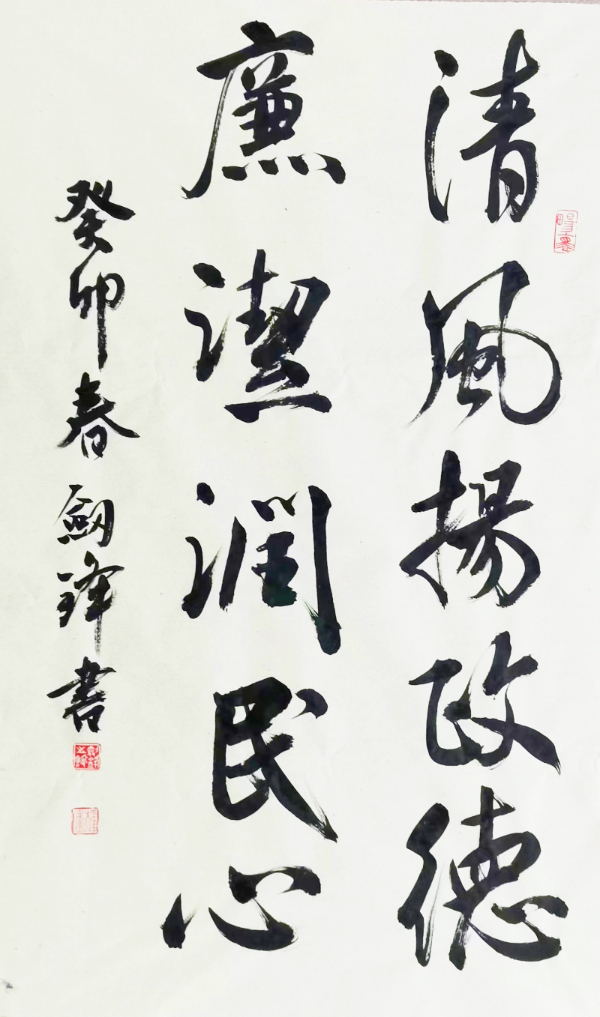 清風揚政德
廉潔潤民心
癸卯春劍鋒書